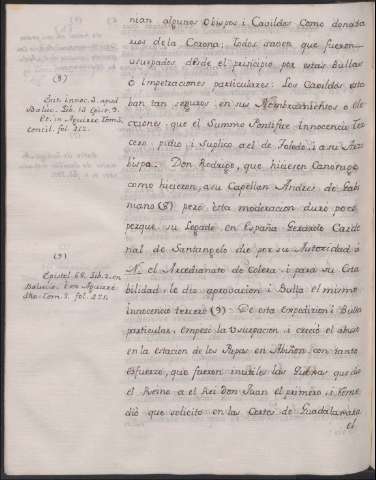 nian algunos Obispos i Cavildos Como donata
rios de la Corona; Todos saven que fueron
usurpados desde el principio por estas Bullas
ò Impetraciones particulares: Los Cavildos esta
ban tan seguros en sus Nombramientos o ele
cciones, que el Summo Pontifice Innocencio Ter
cero pidio, i Suplico a el de Toledo, i a su Arzo
bispo Don Rodrigo, que hiciesen Canonigo
como hicieron, a su Capellan Andres de Gab
niano (8) pero esta moderacion duró poco
porque su Legado en España Gerardo Carde
nal de Santangelo dio por su Autoridad à
N. el Arcedianato de Calera, i para su Esta
bilidad, le dió aprovacion i Bulla el mismo
Innocencio tercero (9): De esta expedicion i Bulla
particular, empezó la Usurpacion, i creció el abuso
en la estacion de los Papas en Abiñon con tanto
esfuerzo, que fueron inutiles las Quexas que dió
el Reino a el Rei Don Juan el primero, i Reme
dió que solicitó en las Cortes de Guadalaxara
el
(8)
Bal. Lib. 13 Epist. 3.
concil. fol. 212.
(9)
Epistol. 68. Lib. 2. en
Balucio, i en Aguirre
dho. tom. 3. fol. 271.